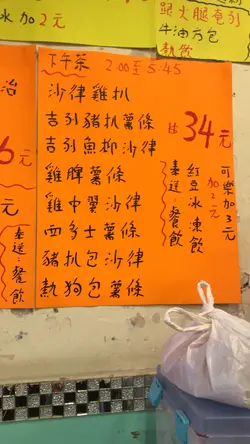 冰加2元
跟火腿奄列
牛油方包
熱飲
下午茶 2:00至5:45
沙律雞扒
吉列豬扒薯條
吉列魚柳沙律
雞脾薯條
雞中翼沙律
西多士薯條
豬扒包沙律
熱狗包薯條
34元
奉送:餐飲
紅豆冰凍飲
加2元
可樂加3元
治
6元
奉送:餐飲